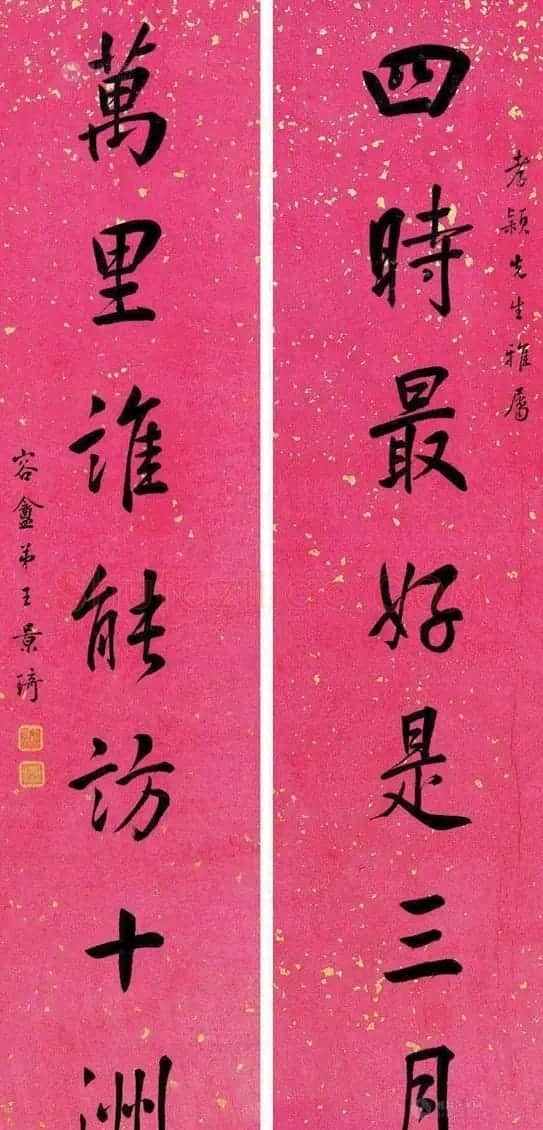 孝颖先生雅属
四時最好是三月
萬里誰能訪十洲
容盦弟王景琦